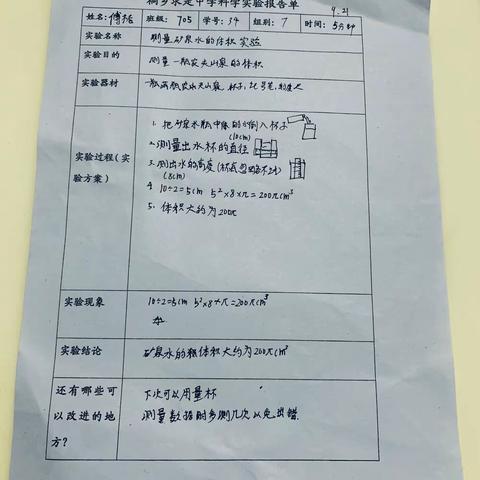 桐乡求是中学科学实验报告单
9.21
姓名: 傅括 班级: 705 学号: 34 组别: 7 时间: 5分钟
实验名称 测量矿泉水的体积实验
实验目的 测量一瓶农夫山泉的体积
实验器材 一瓶满瓶农夫山泉、杯子、记号笔、刻度尺
实验过程(实
验方案)
1. 把矿泉水瓶中的水倒入杯子
(10cm)
2. 测量出水杯的直径
3. 测出水的高度(杯底忽略不计)
(8cm)
4. 10÷2=5cm 5²×8×π=200πcm³
5. 体积大约为200π
实验现象 10÷2=5cm 5²×8×π=200πcm³
实验结论 矿泉水的体积大约为200πcm³
还有哪些可
以改进的地
方?
下次可以用量杯
测量数据时多测几次以免出错.